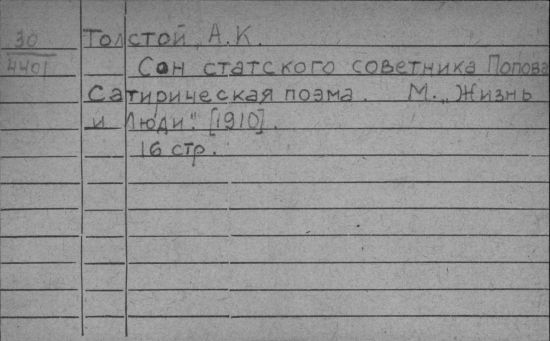 30
4401
Толстой, А.К.
Сон статского советника Попова
Сатирическая поэма. М. „Жизнь
и Люди". [1910].
16 стр.